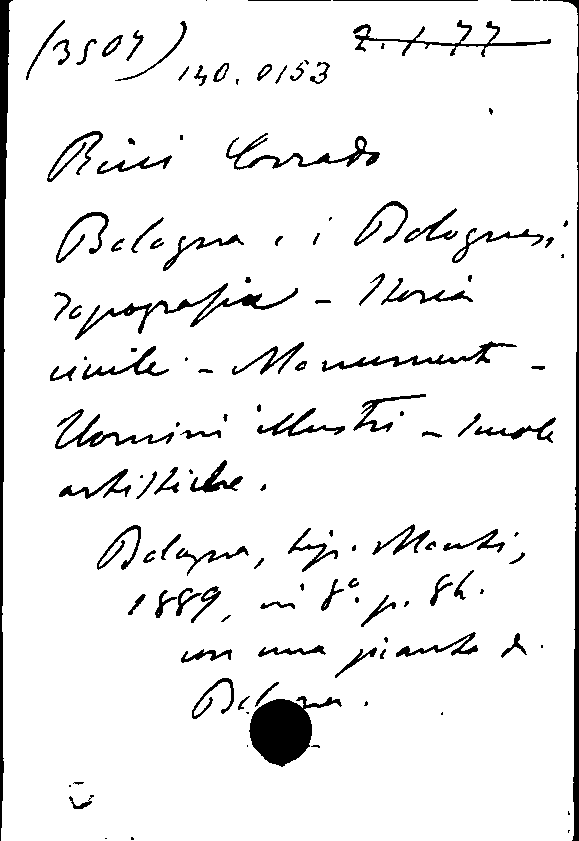 (3507) 140.0153 Z.1.77
Ricci Corrado
Bologna e i Bolognesi.
Topografia - Storia
civile - Monumenti -
Uomini illustri - Scuole
artistiche.
Bologna, tip. Monti,
1889, in 8º. p. 84.
con una pianta di
Bologna.